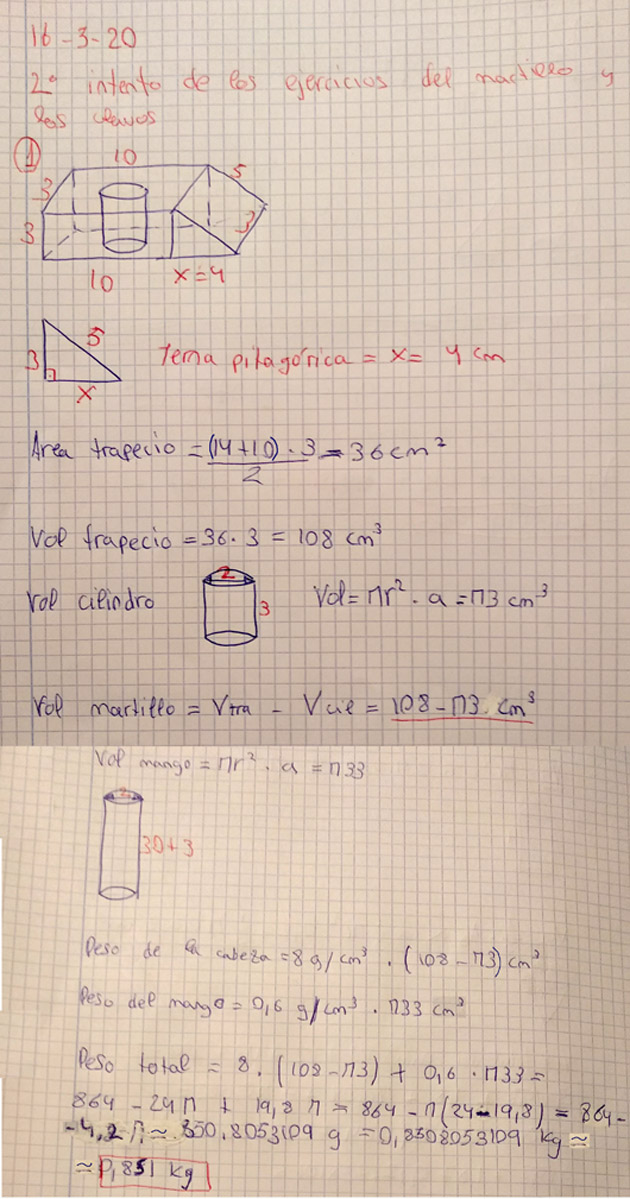 16-3-20
2º intento de los ejercicios del martillo y
los clavos
1
10
5
3
3
3
10 x=4
3 5
x
Terna pitagórica = x= 4 cm
Área trapecio = (14+10)·3 = 36 cm²
2
Vol trapecio = 36·3 = 108 cm³
Vol cilindro 2 3 Vol= πr²·a = π3 cm³
Vol martillo = Vtra - Vcil = 108-π3 cm³
Vol mango = πr²·a = π33
2
30+3
Peso de la cabeza = 8 g/cm³ · (108-π3) cm³
Peso del mango = 0,6 g/cm³ · π33 cm³
Peso total = 8·(108-π3) + 0,6·π33 =
864 - 24π + 19,8π = 864 - π(24-19,8) = 864-
-4,2π ≈ 850,8053109 g = 0,8508053109 kg ≈
≈ 0,851 kg